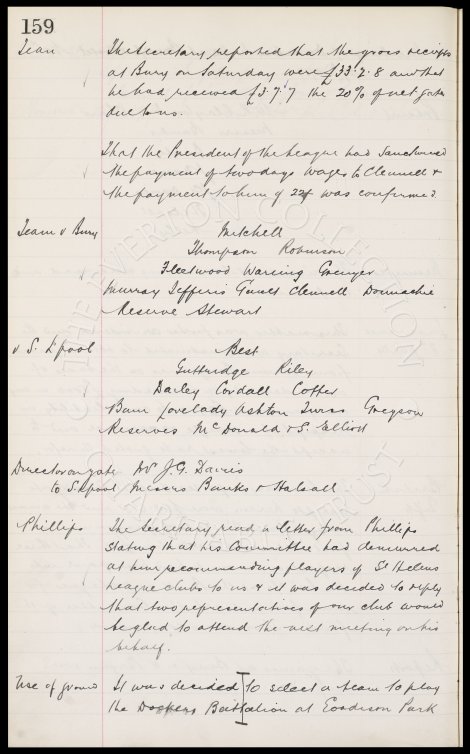 159
Team The Secretary reported that the gross receipts
at Bury on Saturday were £33.2.8 and that
he had received £3.7.7 the 20% of net gate
due to us.
That the President of the League had sanctioned
the payment of two days wages to Clennell &
the payment to him of 22/- was confirmed.
Team v Bury Mitchell
Thompson Robinson
Fleetwood Wareing Grenyer
Murray Jefferis Gault Clennell Donnachie
Reserve Stewart
v S. L'pool Best
Guttridge Riley
Darley Cordall Cotter
Bann Lovelady Ashton Swass Greyson
Reserves McDonald & S. Elliott
Director on gate Dr J.G. Davies
to S. L'pool Messrs Banks & Halsall
Phillips The Secretary read a letter from Phillips
stating that his Committee had demurred
at him recommending players of St Helens
League clubs to us & it was decided to reply
that two representatives of our club would
be glad to attend the next meeting on his
behalf.
Use of ground It was decided to select a team to play
the Dockers Battalion at Goodison Park
THE EVERTON COLLECTION
CHARITABLE TRUST